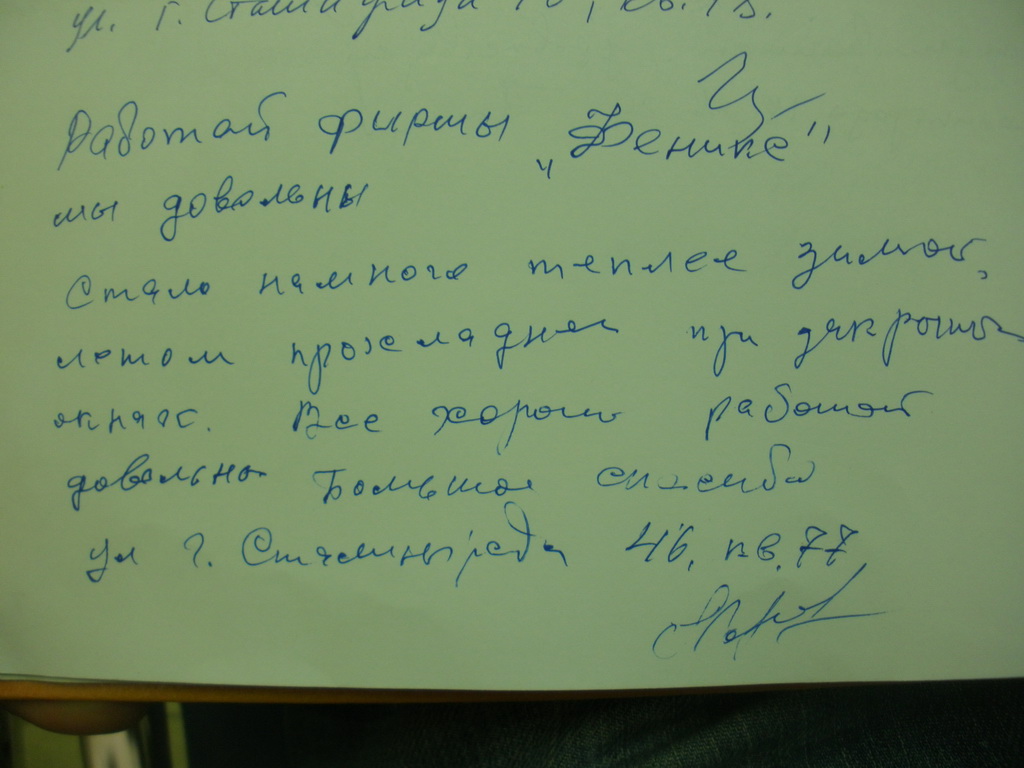 ул. г. Сталинграда
Работой фирмы „Феникс"
мы довольны
Стало намного теплее зимой,
летом прохладнее при закрытых
окнах. Все хорошо работой
довольны Большое спасибо
ул г. Сталинграда 46, кв. 77